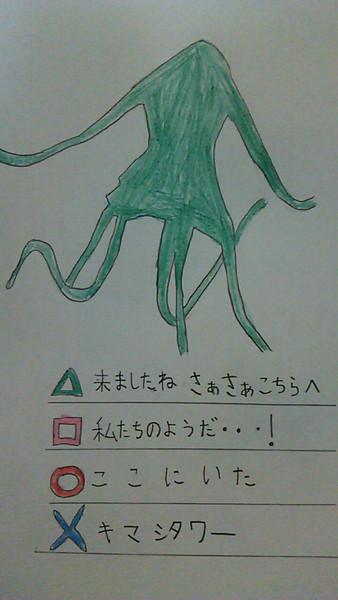 △ 来ましたね さぁさぁこちらへ
□ 私たちのようだ・・・!
○ ここにいた
× キマシタワー